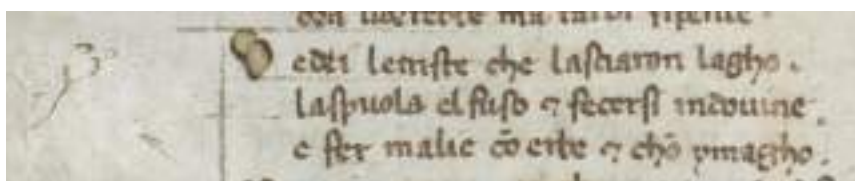 ma tardi sipente .
V edi letriste che lasciaron lagho .
laspuola elfuso ⁊ fecersi indouine .
e fer malie cō erbe ⁊ chō ymagho .